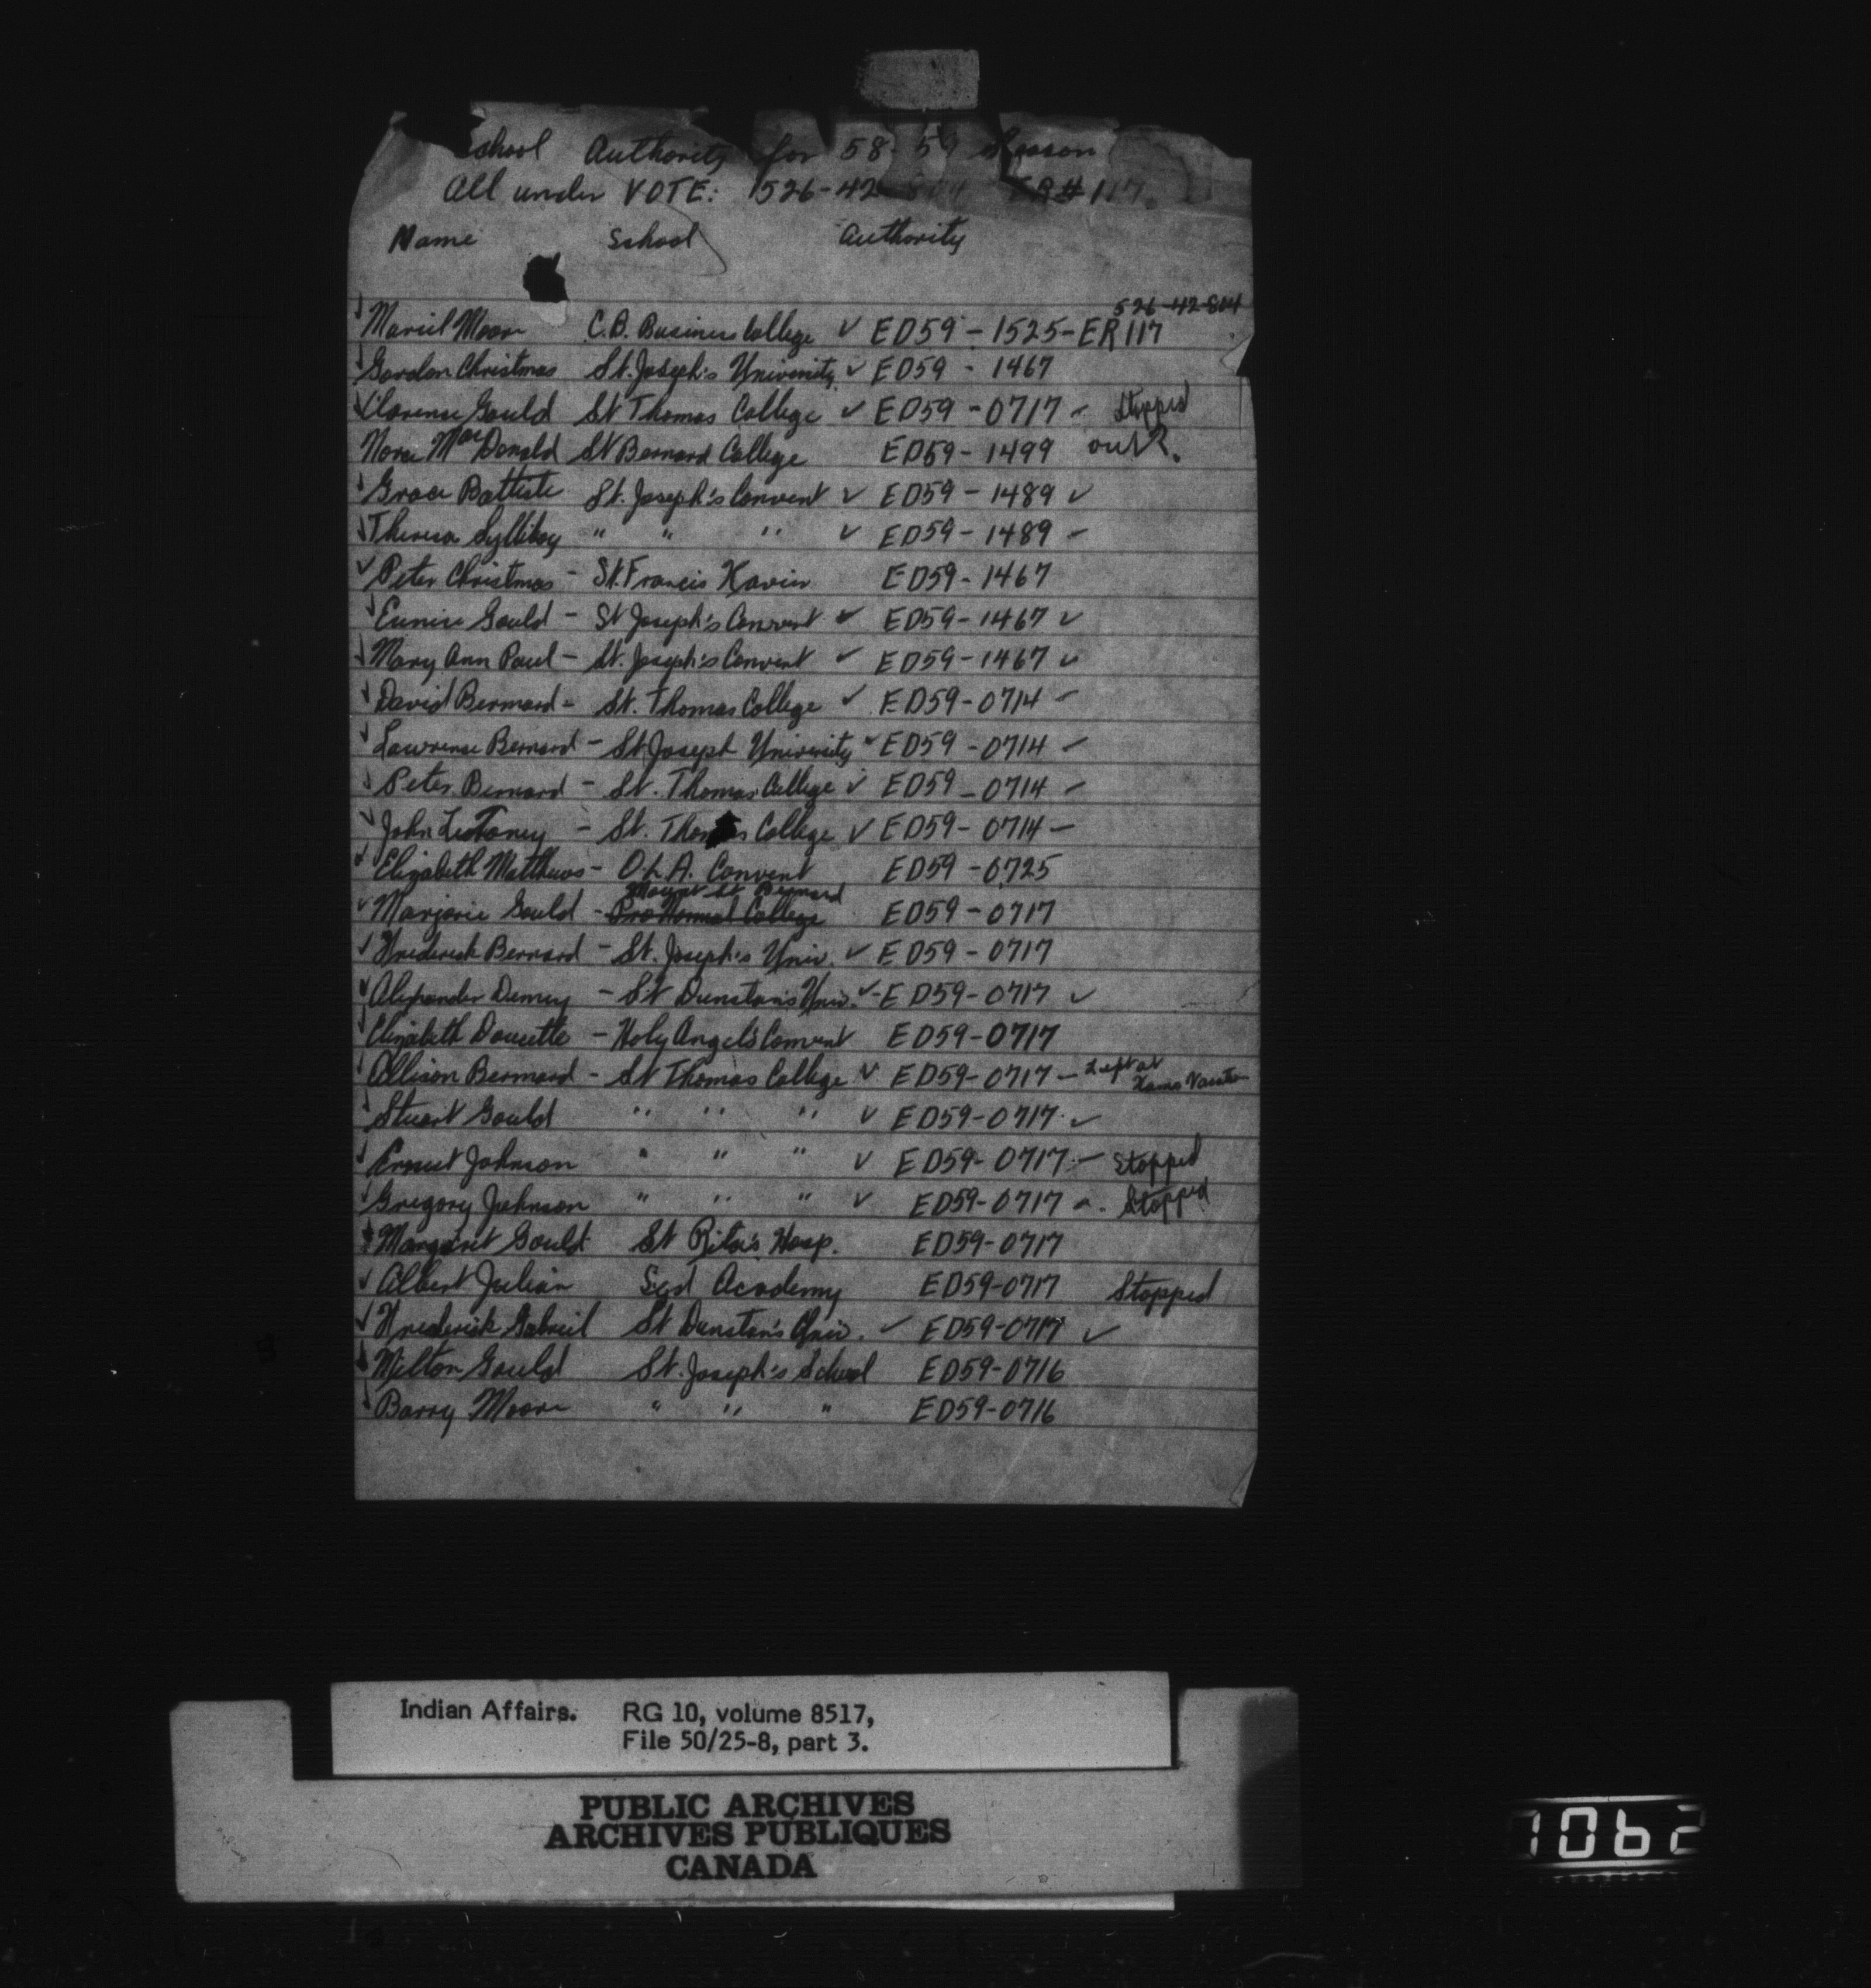 School Authority for 58-59 Season
All under VOTE: 526-42-804 ER#117.
Name School Authority
526-42-804
✓ Muriel Moore C.B. Business College ✓ ED59-1525-ER117
✓ Gordon Christmas St. Joseph's University ✓ ED59-1467
✓ Clarence Gould St Thomas College ✓ ED59-0717 - Stopped
Nora MacDonald St Bernard College ED59-1499 out?
✓ Grace Battiste St. Joseph's Convent ✓ ED59-1489 ✓
✓ Theresa Sylliboy " " " ✓ ED59-1489 -
✓ Peter Christmas - St. Francis Xavier ED59-1467
✓ Eunice Gould - St Joseph's Convent ✓ ED59-1467 ✓
✓ Mary Ann Paul - St. Joseph's Convent ✓ ED59-1467 ✓
✓ David Bernard - St. Thomas College ✓ ED59-0714 -
✓ Lawrence Bernard - St Joseph University ✓ ED59-0714 -
✓ Peter Bernard - St. Thomas College ✓ ED59-0714 -
✓ John - St. Thomas College ✓ ED59-0714 -
✓ Elizabeth Matthews - O.L.A. Convent ED59-0725
Mount St Bernard
✓ Marjorie Gould - Pro Normal College ED59-0717
✓ Frederick Bernard - St. Joseph's Univ. ✓ ED59-0717
✓ Alexander Denny - St Dunstan's Univ. ✓ - ED59-0717 ✓
✓ Elizabeth Doucette - Holy Angels Convent ED59-0717
✓ Allison Bernard - St Thomas College ✓ ED59-0717 - Left at
Xmas Vacation
✓ Stuart Gould " " " ✓ ED59-0717 ✓
✓ Ernest Johnson " " " ✓ ED59-0717 - Stopped
✓ Gregory Johnson " " " ✓ ED59-0717 - Stopped
Margaret Gould St Rita's Hosp. ED59-0717
✓ Albert Julian Academy ED59-0717 Stopped
✓ Frederick Gabriel St Dunstan's Univ. ✓ ED59-0717 ✓
✓ Milton Gould St. Joseph's School ED59-0716
✓ Barry Moore " " " ED59-0716
Indian Affairs. RG 10, volume 8517,
File 50/25-8, part 3.
PUBLIC ARCHIVES
ARCHIVES PUBLIQUES
CANADA
1062